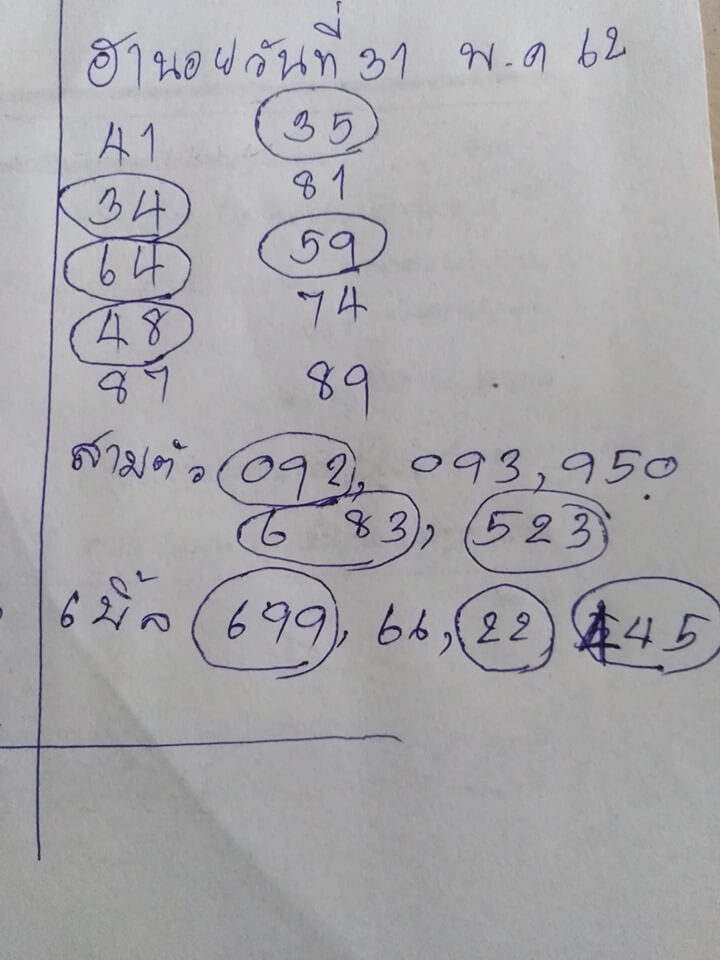 ฮานอยวันที่ 31 พ.ค 62
41 35
34 81
64 59
48 74
87 89
สามตัว 092, 093, 950
6 83, 523
เบิ้ล 699, 66, 22 445